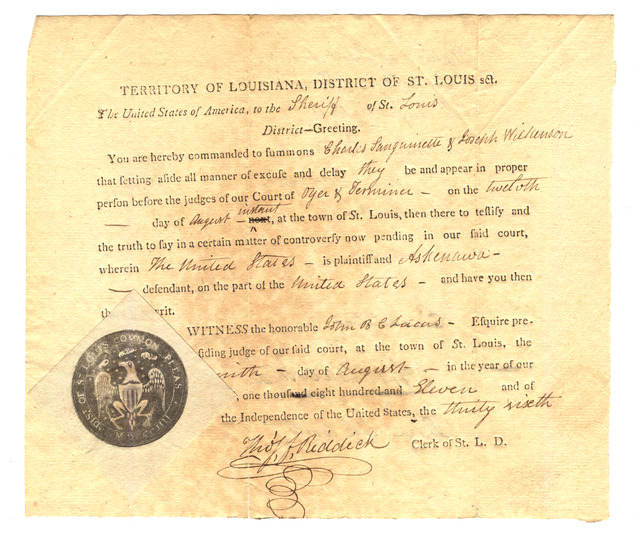 TERRITORY OF LOUISIANA, DISTRICT OF ST. LOUIS sct.
The United States of America, to the Sheriff of St. Louis
District—Greeting.
You are hereby commanded to summons Charles Sanguinette & Joseph Wilkenson
that setting aside all manner of excuse and delay they be and appear in proper
person before the judges of our Court of Oyer & Terminer — on the twelvth
— day of August — instant next, at the town of St. Louis, then there to testify and
the truth to say in a certain matter of controversy now pending in our said court,
wherein The United States — is plaintiff and Askenawa —
— defendant, on the part of the United States — and have you then
th writ.
WITNESS the honorable John B C Lucas — Esquire pre-
siding judge of our said court, at the town of St. Louis, the
ninth — day of August — in the year of our
, one thousand eight hundred and Eleven and of
the Independence of the United States, the thirty sixth
Thos. F. Riddick Clerk of St. L. D.
ST. LOUIS COMMON PLEAS